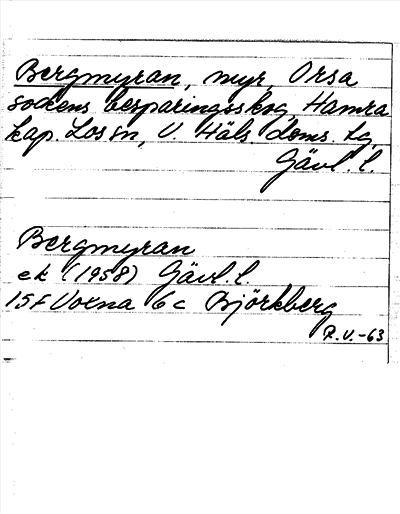 Bergmyran, myr, Orsa
sockens besparingsskog, Hamra
kap. Los sn, V. Häls. doms. tg,
Gävl. l.
Bergmyran
ek (1958) Gävl. l.
15F Voxna 6c Björkberg
R.V.-63